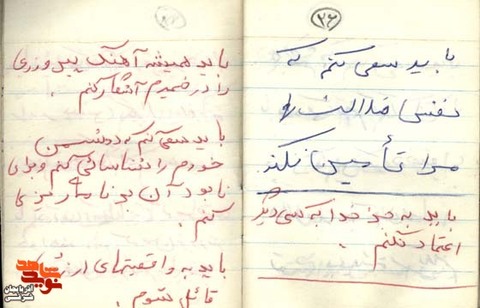 ۲۶
باید سعی کنم که
نفس ضد الله
مرا تأمین نکند
باید به جز خدا به کسی دیگر
اعتماد نکنم.
باید همیشه آهنگ پیروزی
را در ضمیرم آشکار کنم.
باید سعی کنم که دشمن
خودم را شناسائی کنم و برای
نابود آن برنامه ریزی
کنم.
باید به واقعیتهای
قائل شوم.
نوید شاهد
آذربایجان شرقی